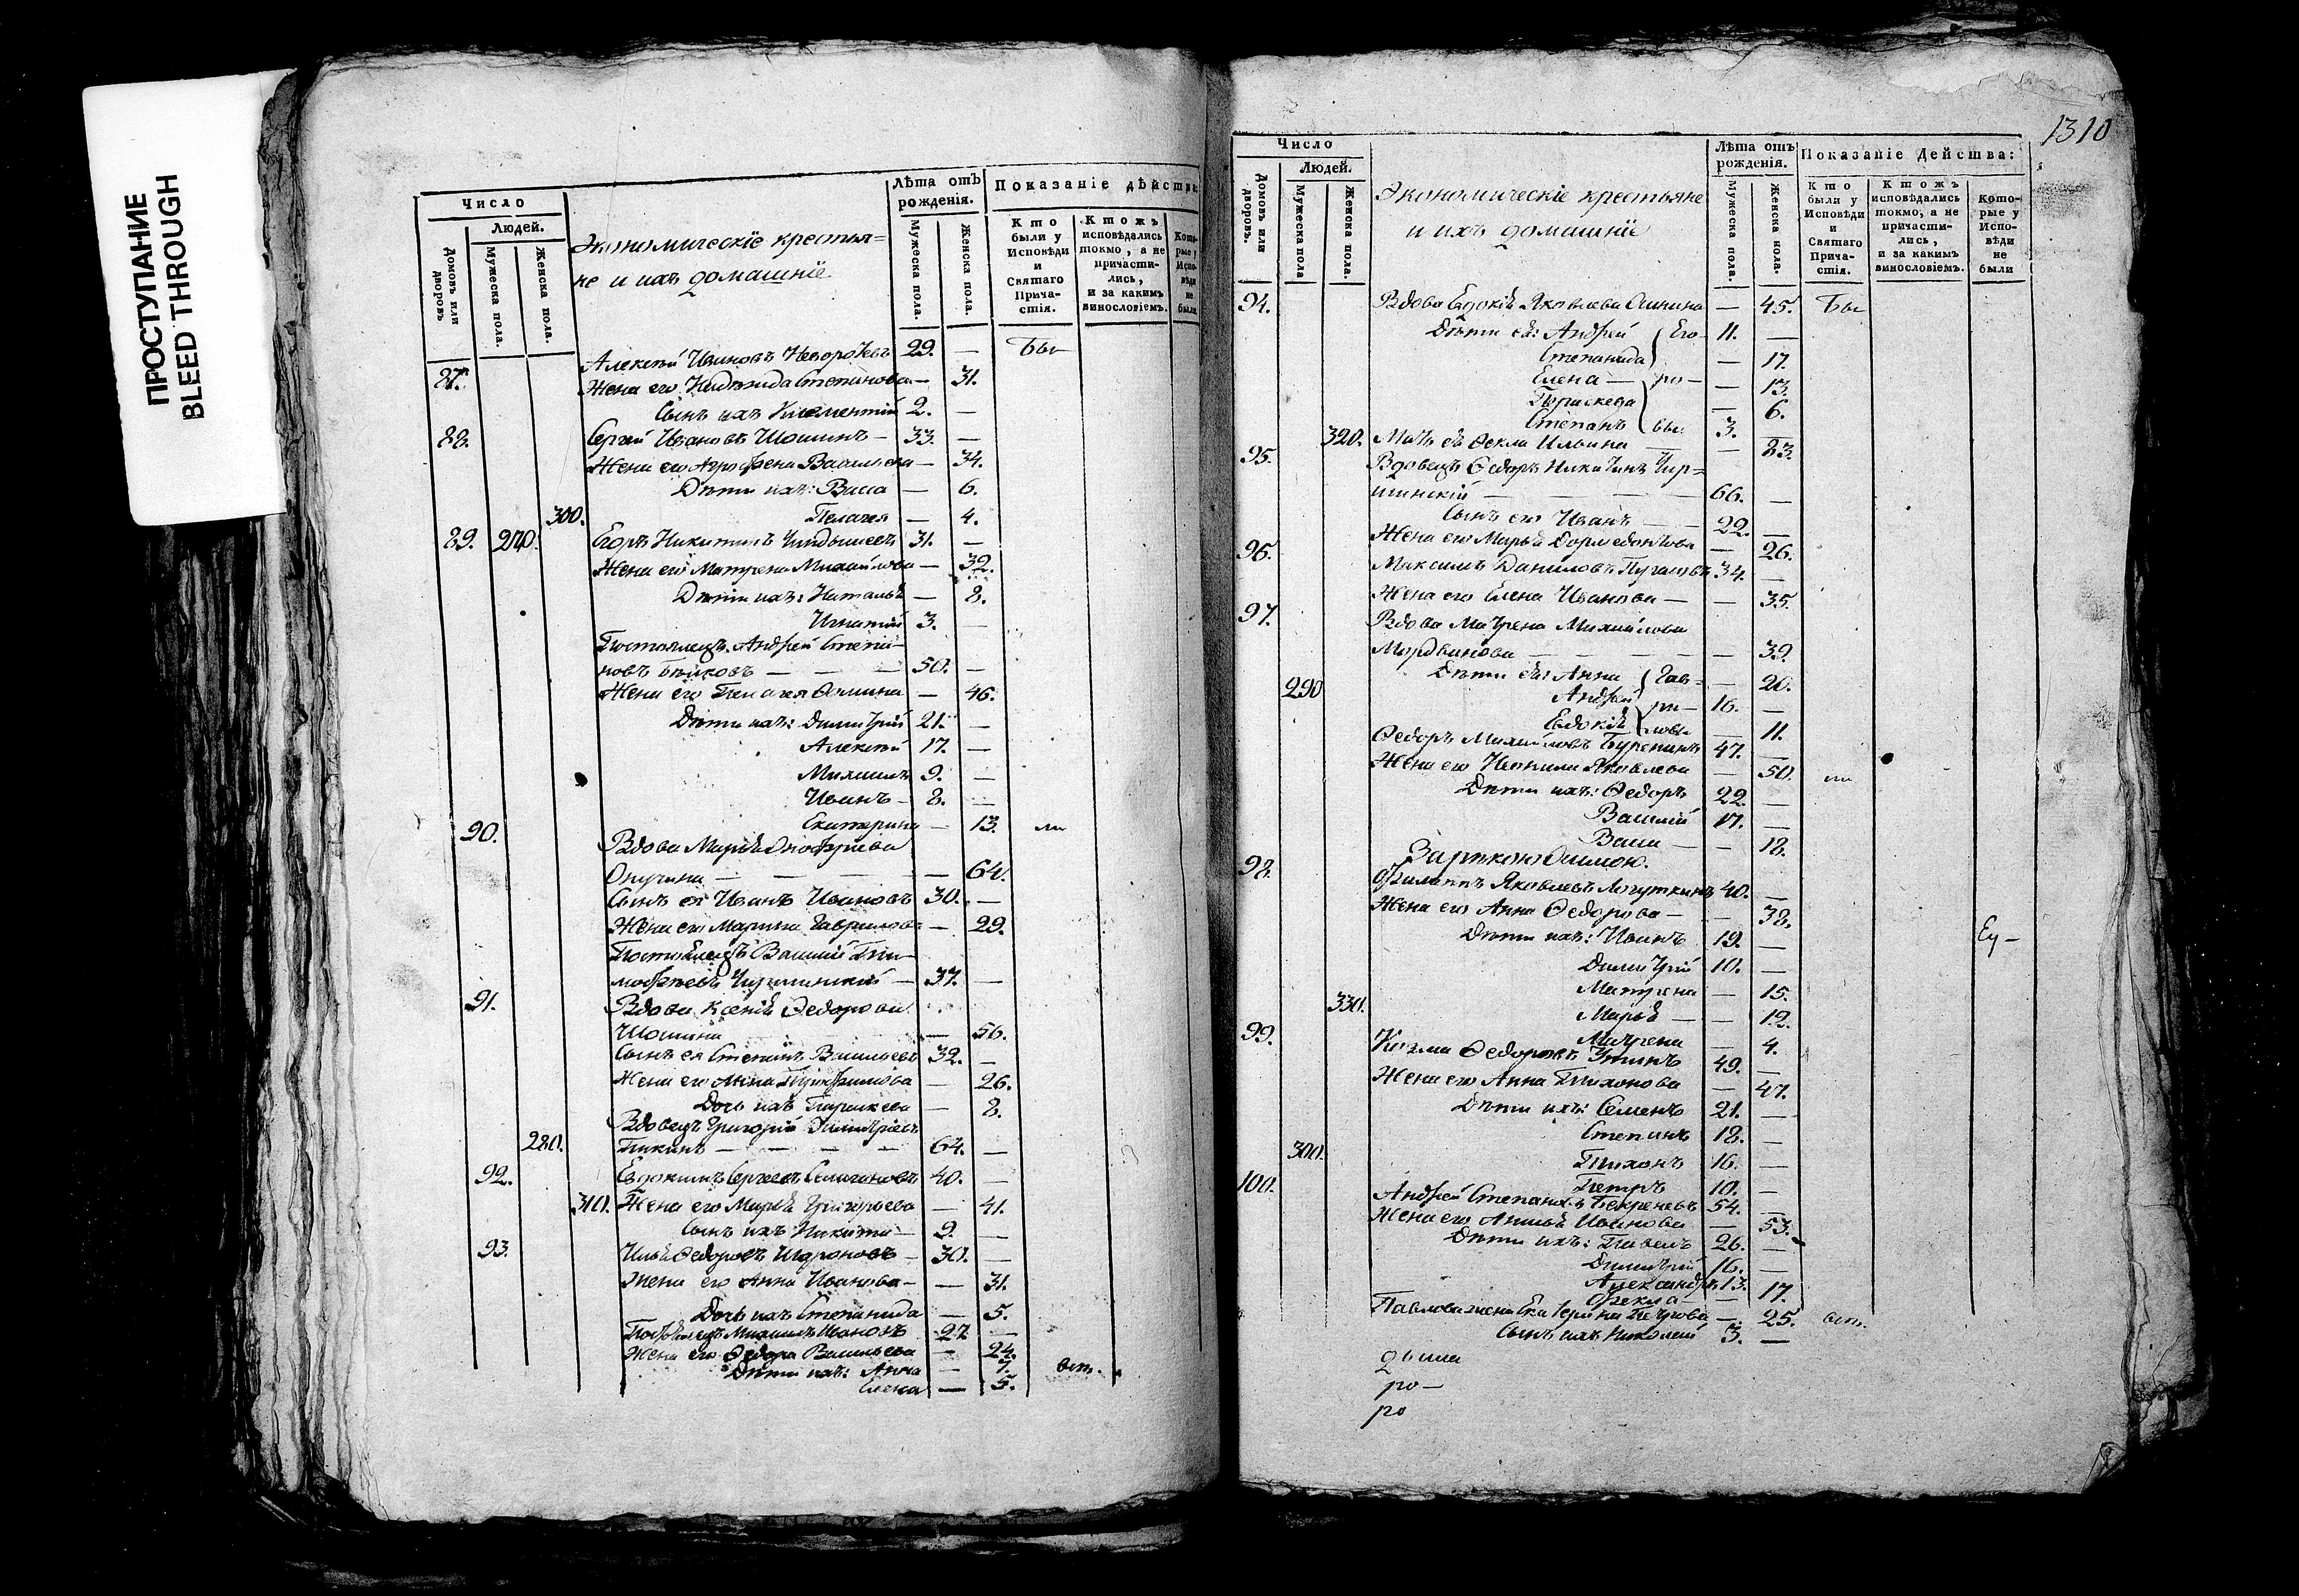 ПРОСТУПАНИЕ
BLEED THROUGH
Число
Людей.
Домовъ или дворовъ
Мужеска пола.
Женска пола.
Экономическіе крестья=
не и ихъ домашніе
Лѣта отъ рожденія.
Мужеска пола.
Женска пола.
Показаніе дѣйства
Кто были у Исповѣди и Святаго Прича-стія.
Ктожъ исповѣдались токмо, а не причасти-лись, и за какимъ винословіемъ.
Кото-рые у Испо-вѣди не были
87. Алексѣй Ивановъ 29. — Бы-
Жена его Степанова — 31.
Сынъ ихъ Климентій 2. —
88. Сергѣй Ивановъ Шошинъ — 33. —
Жена его Агрофена Васильева — 34.
Дѣти ихъ: Васса — 6.
300. Пелагея — 4.
89. 270. Егоръ Никитинъ 31. —
Жена его Матрена Михайлова — 32.
Дѣти ихъ: Наталья — 8.
Игнатій 3. —
Постоялецъ Андрей Степа-
новъ Быковъ — — — 50. —
Жена его Пелагея Фомина — 46.
Дѣти ихъ: Димитрій 21. —
Алексѣй 17. —
Михаилъ 9. —
Иванъ — 8. —
Екатерина — 13. ли
90. Вдова Марья Онофріева
— — — — 64.
Сынъ ея Иванъ Ивановъ 30. —
Жена его Марина Гаврилова — 29.
Постоялецъ Василій Ти-
мофѣевъ Чиршинскій — 37. —
91. Вдова Ксенія Федорова
Шошина — 56.
Сынъ ея Степанъ Васильевъ 32. —
Жена его Анна — 26.
Дочь ихъ Параскева — 8.
Вдовецъ Григорій Димитріевъ
280. Пикинъ — — — — 64. —
92. Евдокимъ Сергеевъ 40. —
310. Жена его Марья Григорьева — 41.
Сынъ ихъ Никита — 9. —
93. Илья Федоровъ 30. —
Жена его Анна Иванова — — 31.
Дочь ихъ Степанида — 5.
Михаилъ Ивановъ 27. —
Жена его Федора Васильева — 24.
Дѣти ихъ: Анна — 7. вси.
Елена — 5.
1310
Число
Людей.
Домовъ или дворовъ.
Мужеска пола
Женска пола.
Экономическіе крестьяне
и ихъ домашніе
Лѣта отъ рожденія.
Мужеска пола.
Женска пола.
Показаніе Действа:
Кто были у Исповѣди и Святаго Прича-стія.
Ктожъ исповѣдались токмо, а не причасти-лись, и за какимъ винословіемъ.
Кото-рые у Испо-вѣди не были
94. Вдова Евдокія Яковлева — 45. Бы-
Дѣти ея: Андрей Его- 11. —
Степанида — 17.
Елена — ро- — 13.
Параскева — 6.
Степанъ вы 3.
320. Мать ея Фекла Ильина — — 83.
95. Вдовецъ Федоръ Никитинъ Чир=
шинскій — — — — 66. —
Сынъ его Иванъ — — 22. —
Жена его Марья Дормедонтова — 26.
96. Максимъ Даниловъ 34. —
Жена его Елена Иванова — — 35.
97. Вдова Матрена Михайлова
Мордвинова — — — — — 39.
Дѣти ея: Анна Гав- — 20.
290 Андрей ри- 16. —
Евдокія ловы — 11.
Федоръ Михайловъ Буренинъ 47. —
Жена его Яковлева — 50. ли
Дѣти ихъ: Федоръ 22. —
Василій 17. —
Васса — — 18.
За рѣкою
98. Филиппъ Яковлевъ Логуткинъ 40. —
Жена его Анна Федорова — — 38.
Дѣти ихъ: Иванъ 19. — Еу-
Димитрій 10. —
Матрена — 15.
330. Марья — — 12.
Матрена — 4.
99. Козма Федоровъ 49. —
Жена его Анна Тихонова — 47.
Дѣти ихъ: Семенъ 21. —
Степанъ 18. —
300. Тихонъ 16. —
Петръ 10. —
100. Андрей Степановъ 54. —
Жена его Иванова — 53.
Дѣти ихъ: Павелъ 26. —
Димитрій 16. —
Александръ 13.
Фекла — — 17.
Павлова жена Екатерина Петрова — 25. вси.
Сынъ ихъ Николай 3. —
ро —
ро